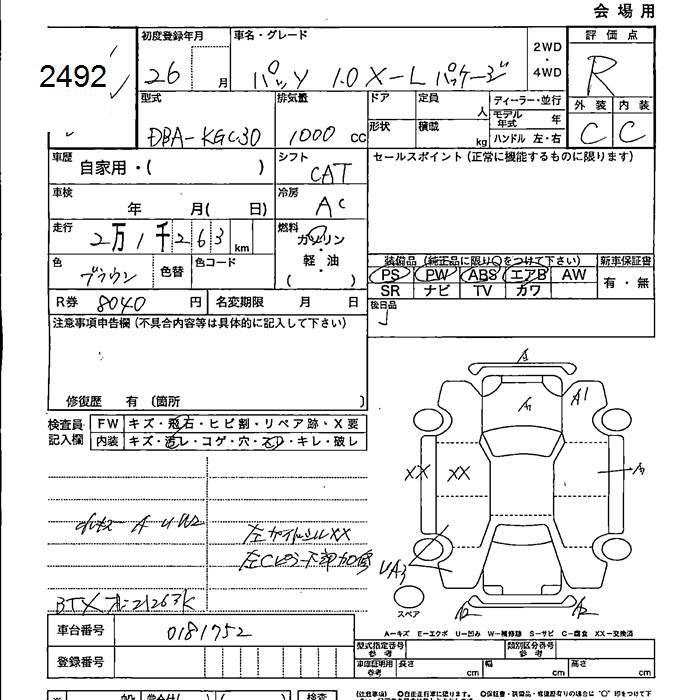 会場用
2492
初度登録年月
26 月
車名・グレード
パッソ 1.0 X-Lパッケージ
2WD
・
4WD
評価点
R
外装 内装
C C
型式
DBA-KGC30
排気量
1000 cc
ドア
定員 人
形状
積載 kg
ディーラー・並行
モデル年式 年
ハンドル 左・右
車歴
自家用・( )
シフト
CAT
セールスポイント(正常に機能するものに限ります)
車検
年 月( 日)
冷房
AC
走行
2万1千263km
燃料
ガソリン
・
軽・油
( )
色
ブラウン
色替
色コード
装備品(純正品に限り○をつけて下さい)
新車保証書
PS PW ABS エアB AW
有・無
SR ナビ TV カワ
R券 8040 円
名変期限 月 日
後日品
注意事項申告欄(不具合内容等は具体的に記入して下さい)
修復歴 有 (箇所 )
検査員記入欄
FW キズ・飛石・ヒビ割・リペア跡・X要
内装 キズ・汚レ・コゲ・穴・スレ・キレ・破レ
A
A1
A1
XX XX
A1
A U U2
左サイドシルXX
左Cピラー下部加修
UA3
BTX オ=21263K
スペア
A2 A2
A-キズ E-エクボ U-凹み W-補修跡 S-サビ C-腐食 XX-交換済
車台番号
0181752
登録番号
型式指定番号 参考
類別区分番号 参考
車庫証明用 参考
長さ cm
幅 cm
高さ cm